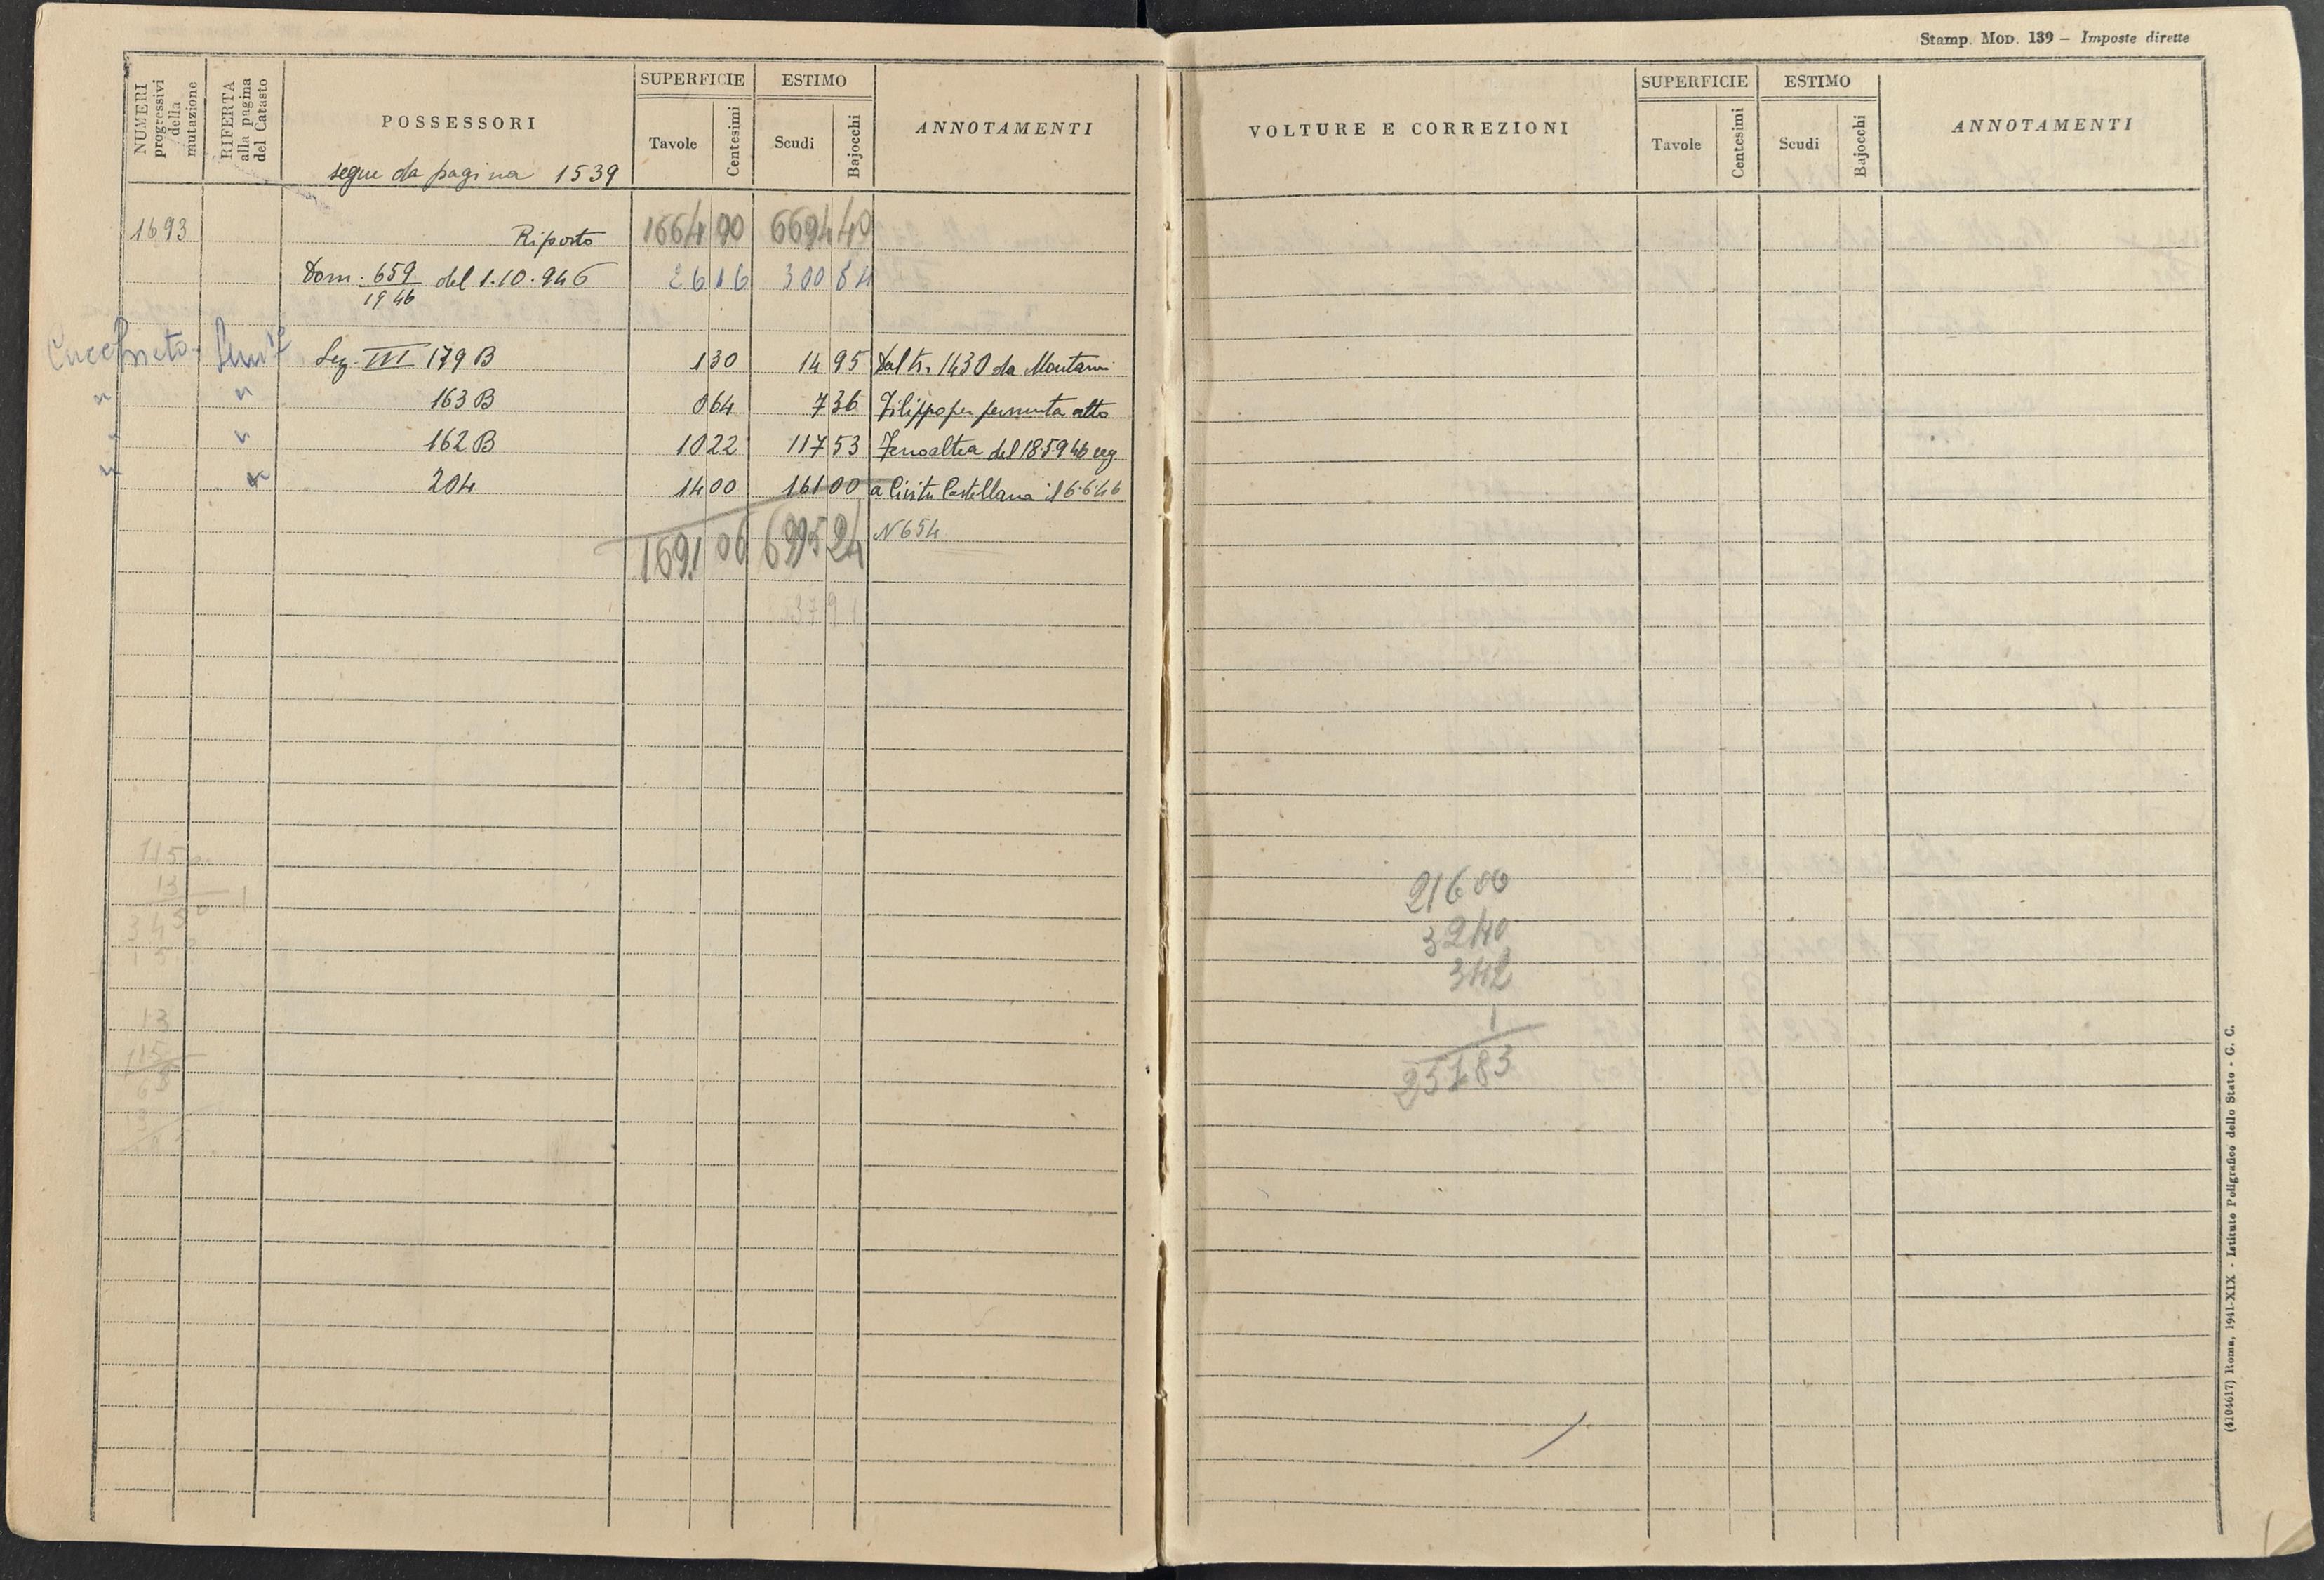 Stamp. Mod. 139 – Imposte dirette
NUMERI progressivi della mutazione
RIFERTA alla pagina del Catasto
POSSESSORI
SUPERFICIE
Tavole
Centesimi
ESTIMO
Scudi
Bajocchi
ANNOTAMENTI
segue da pagina 1539
1693 Riporto 1664 90 6694 40
Dom. 659/1946 del 1.10.946 26 16 300 84
Sez. III 179 B 1 30 14 95 Dal tr. 1430 da Montani
" " 163 B 0 64 7 36 Filippo per permuta atto
" " 162 B 10 22 117 53 del 18.5.946 reg
" " 204 14 00 161 00 a Civita Castellana il 6.6.46
1691 06 6995 24 N 654
115
13
345
13
115
VOLTURE E CORREZIONI
SUPERFICIE
Tavole
Centesimi
ESTIMO
Scudi
Bajocchi
ANNOTAMENTI
21600
3240
342
1
25183
(4104617) Roma, 1941-XIX - Istituto Poligrafico dello Stato - G. C.